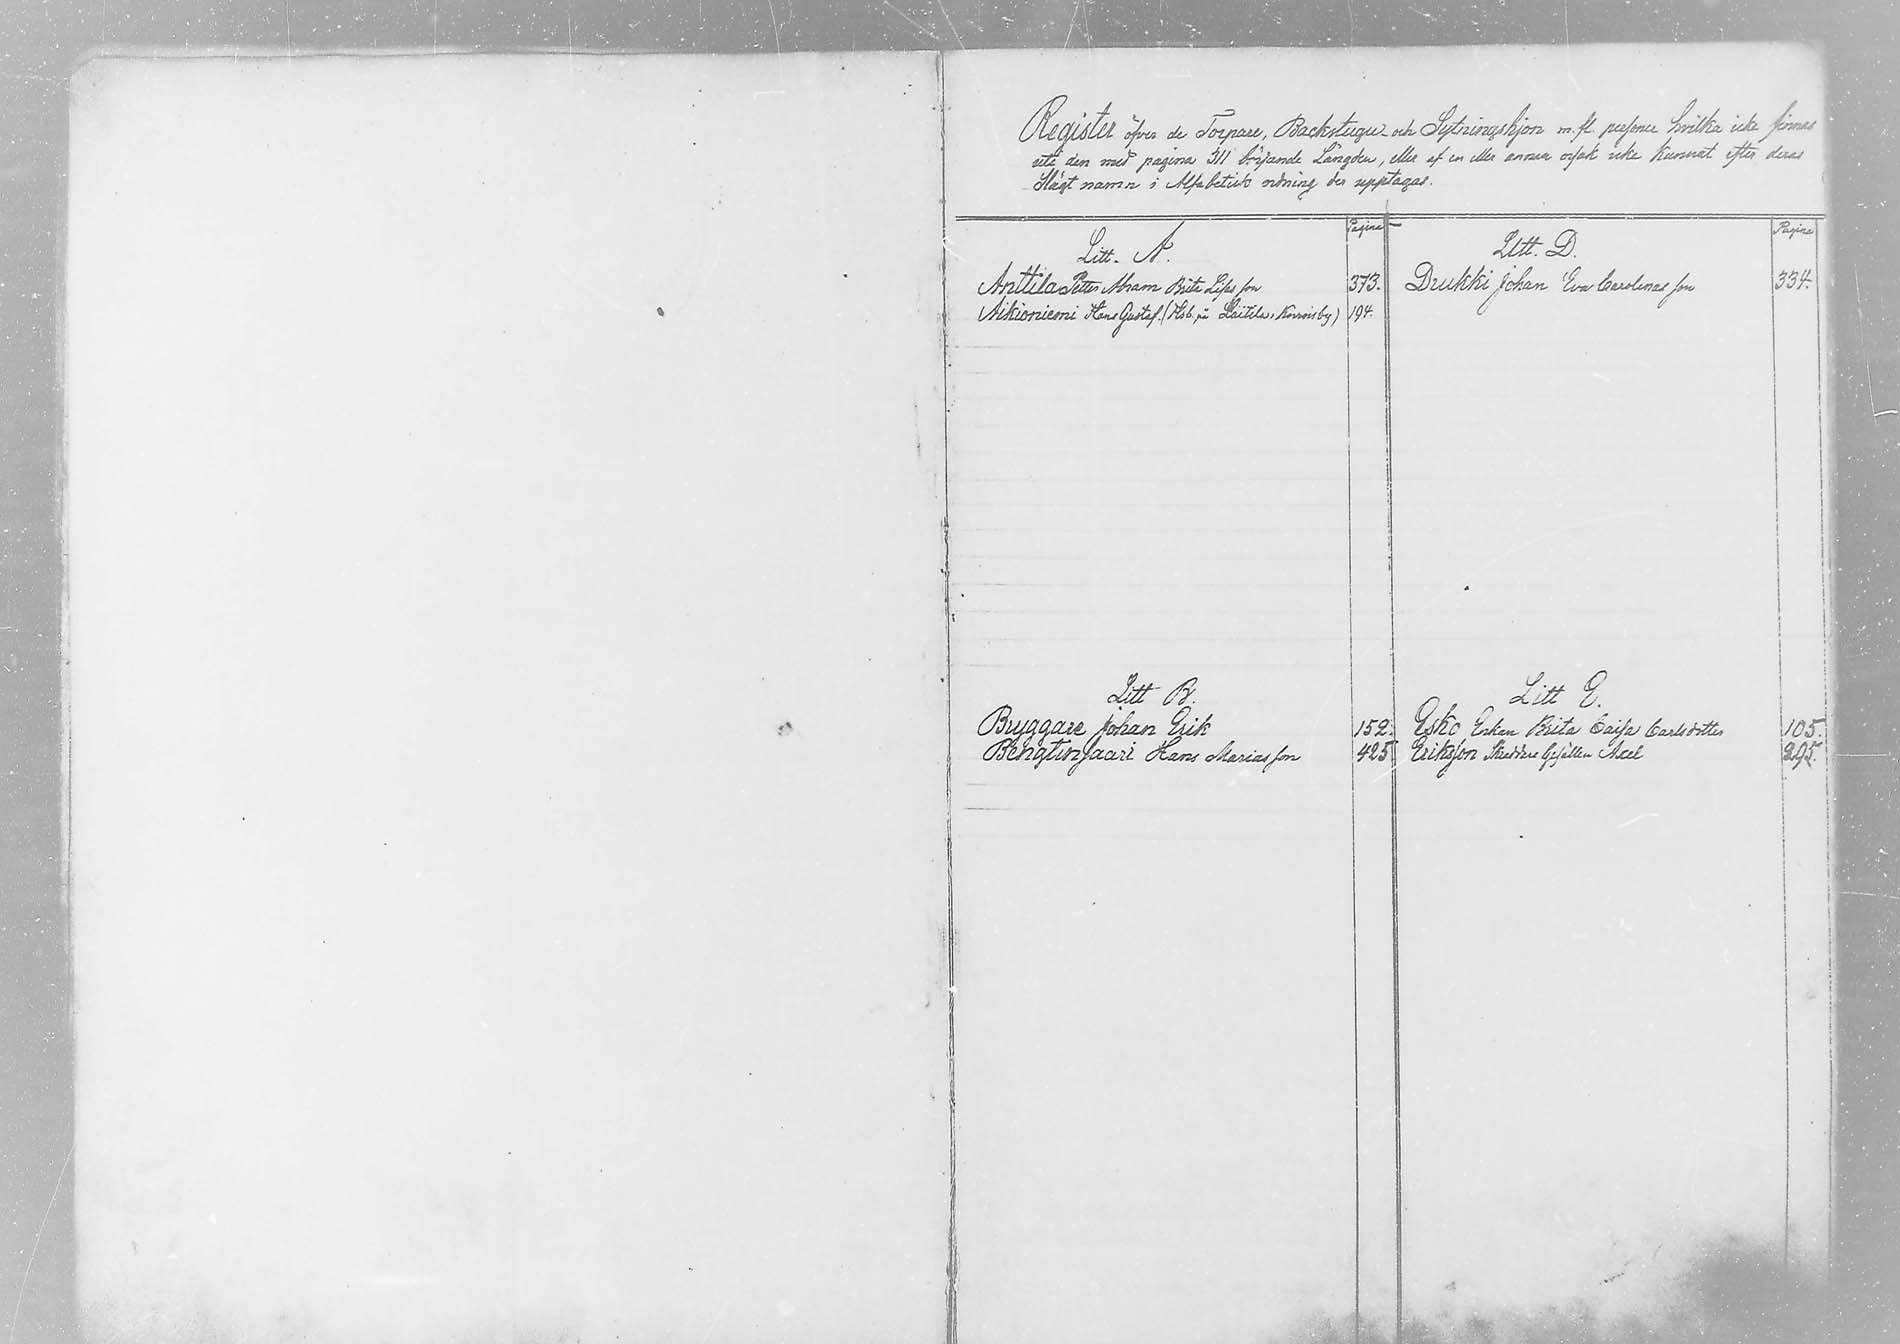 Register öfver de Torpare, Backstugu- och Sytningshjon m.fl. personer hvilka icke finnas
uti den med pagina 311 början­de Längden, eller af en eller annan orsak icke kunnat efter deras
Slägt namn i Alfabetisk ordning der upptagas.
Pagina
Litt. A.
Anttila Petter Abram Brita Lisas son 373.
Aikioniemi Hans Gustaf. (Hsb. på Laitila, Korvoisby) 194.
Litt B.
Bryggare Johan Erik 152.
Bengtinsaari Hans Marias son 425
Pagina
Litt. D.
Drukki Johan Eva Carolinas son 334.
Litt E.
Esko Enkan Brita Caisa Carlsdotter 105.
Eriksson Skräddare Gesällen Axel 295.